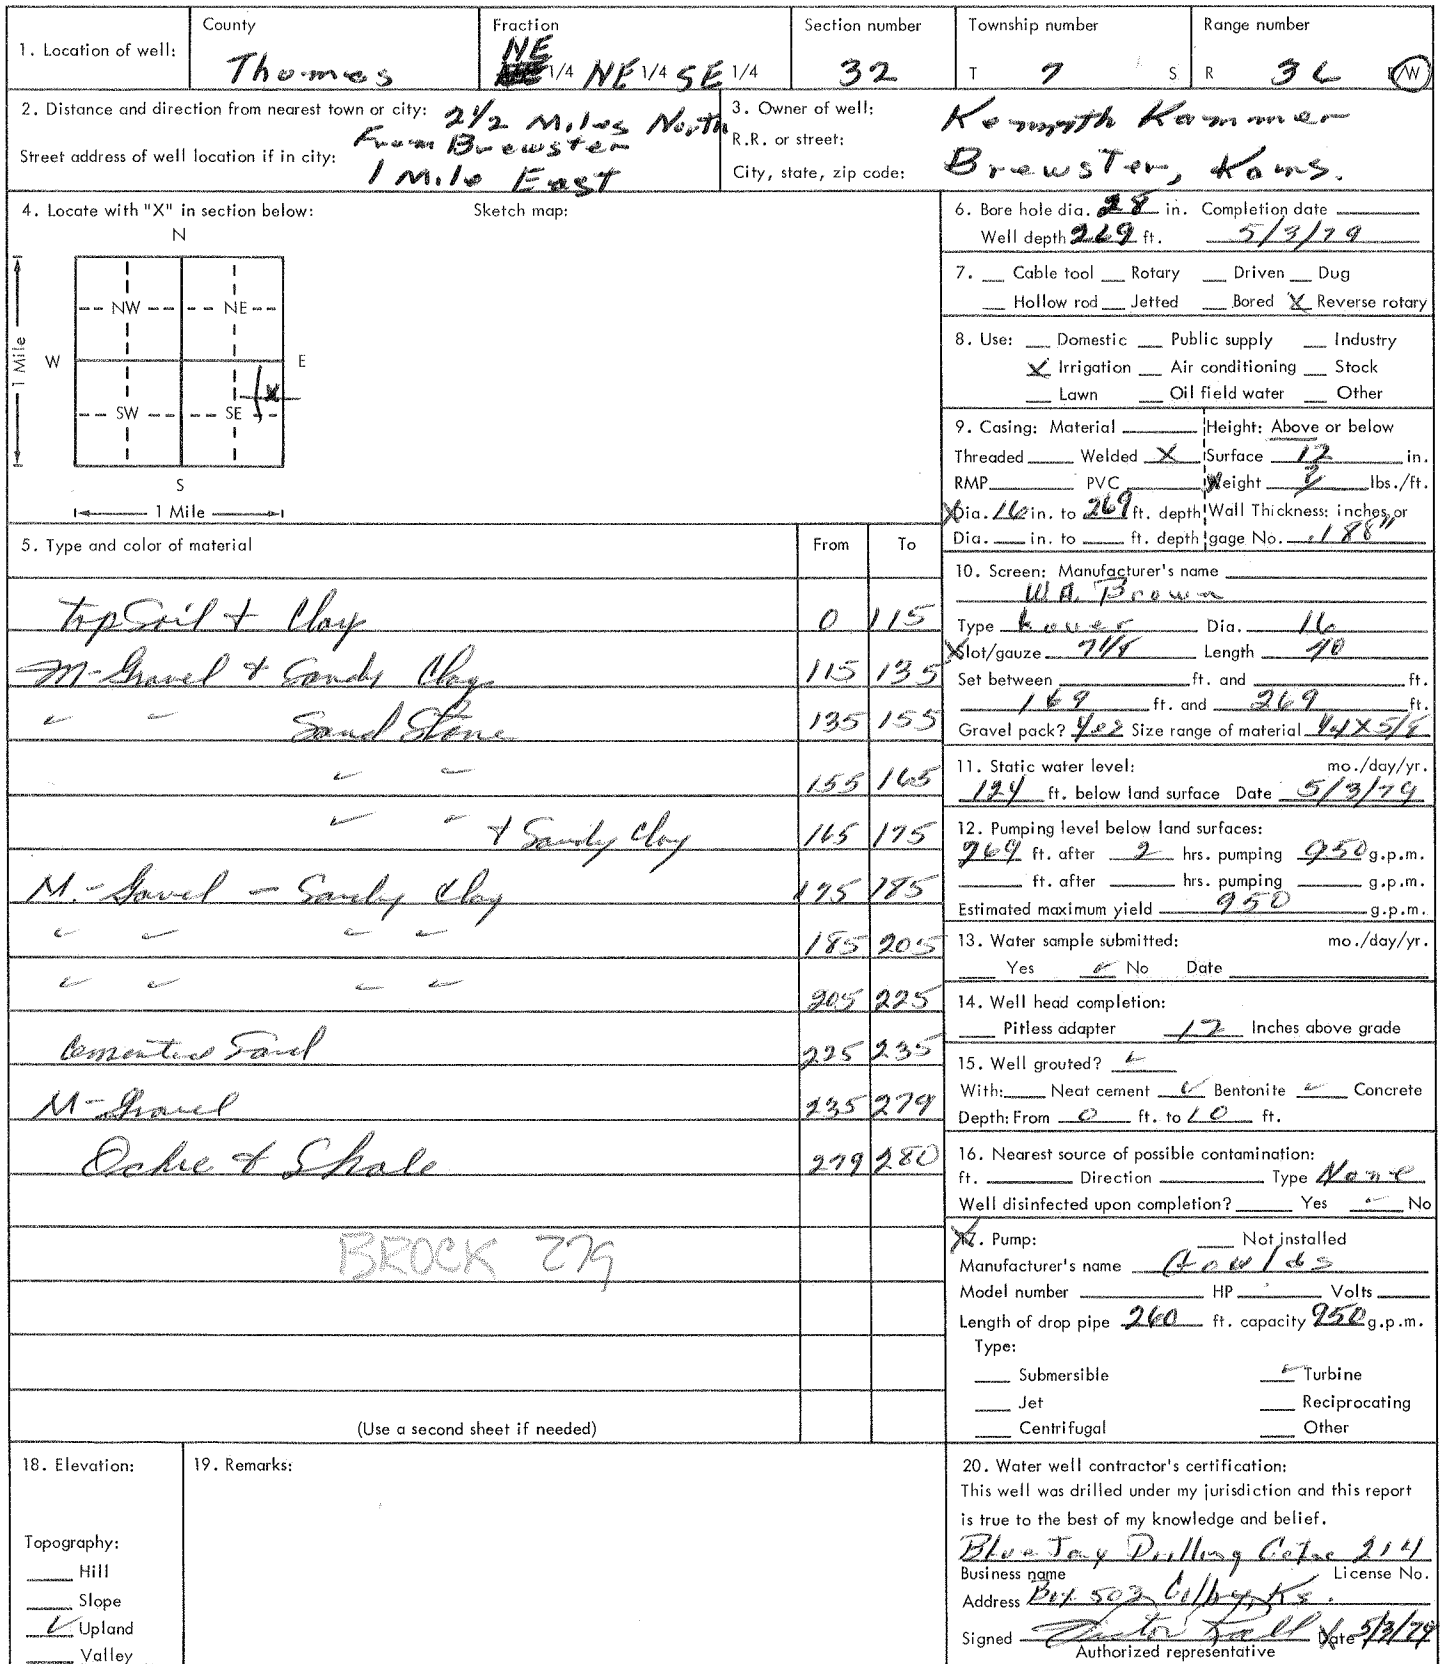 1. Location of well:
County
Thomas
Fraction
NE
1/4 NE 1/4 SE 1/4
Section number
32
Township number
T 7 S
Range number
R 36 W
2. Distance and direction from nearest town or city: 2 1/2 Miles North
From Brewster
Street address of well location if in city:
1 Mile East
3. Owner of well: Kenneth Kammer
R.R. or street:
City, state, zip code: Brewster, Kans.
4. Locate with "X" in section below:
Sketch map:
N
NW NE
W E
1 Mile
X
SW SE
S
1 Mile
5. Type and color of material From To
Top Soil + Clay 0 115
M-Gravel + Sandy Clay 115 135
" " Sand Stone 135 155
" " 155 165
" " + Sandy Clay 165 175
M.-Gravel - Sandy Clay 175 185
" " " " 185 205
" " " " 205 225
Cemented Sand 225 235
M-Gravel 235 279
Ochre & Shale 279 280
BROCK 279
(Use a second sheet if needed)
6. Bore hole dia. 28 in. Completion date
Well depth 269 ft. 5/3/79
7. Cable tool Rotary Driven Dug
Hollow rod Jetted Bored X Reverse rotary
8. Use: Domestic Public supply Industry
X Irrigation Air conditioning Stock
Lawn Oil field water Other
9. Casing: Material Height: Above or below
Threaded Welded X Surface 12 in.
RMP PVC Weight lbs./ft.
Dia. 16 in. to 269 ft. depth Wall Thickness: inches or
Dia. in. to ft. depth gage No. .188"
10. Screen: Manufacturer's name
W.A. Brown
Type Louver Dia. 16
Slot/gauze Length
Set between ft. and ft.
169 ft. and 269 ft.
Gravel pack? Yes Size range of material 1/4 X 5/8
11. Static water level: mo./day/yr.
124 ft. below land surface Date 5/3/79
12. Pumping level below land surfaces:
ft. after 2 hrs. pumping 950 g.p.m.
ft. after hrs. pumping g.p.m.
Estimated maximum yield 950 g.p.m.
13. Water sample submitted: mo./day/yr.
Yes ✓ No Date
14. Well head completion:
Pitless adapter 12 Inches above grade
15. Well grouted? ✓
With: Neat cement ✓ Bentonite ✓ Concrete
Depth: From 0 ft. to 10 ft.
16. Nearest source of possible contamination:
ft. Direction Type None
Well disinfected upon completion? Yes ✓ No
17. Pump: Not installed
Manufacturer's name Goulds
Model number HP Volts
Length of drop pipe 260 ft. capacity 950 g.p.m.
Type:
Submersible ✓ Turbine
Jet Reciprocating
Centrifugal Other
18. Elevation:
Topography:
Hill
Slope
✓ Upland
Valley
19. Remarks:
20. Water well contractor's certification:
This well was drilled under my jurisdiction and this report
is true to the best of my knowledge and belief.
Blue Jay Drilling 214
Business name License No.
Address Box 503 Colby, Ks.
Signed Date 5/3/79
Authorized representative